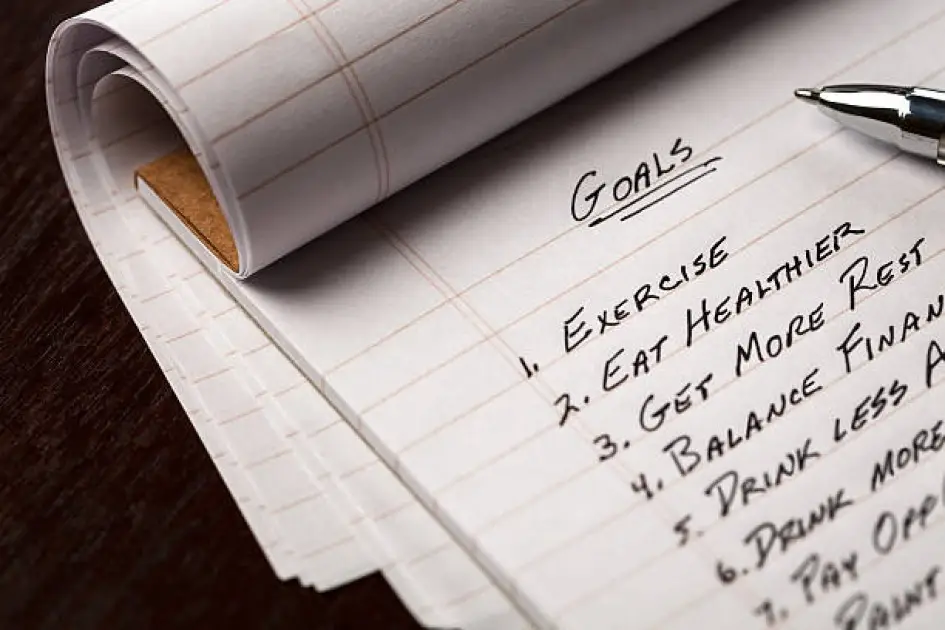 GOALS
1. EXERCISE
2. EAT HEALTHIER
3. GET MORE REST
4. BALANCE FINAN
5. DRINK LESS A
6. DRINK MORE
7. PAY OPP
PAINT